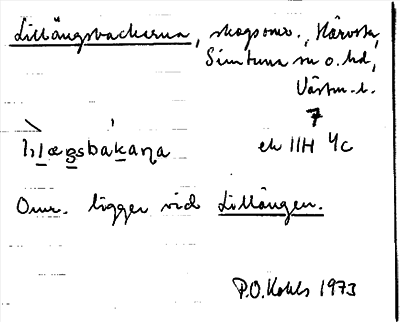 Lillängsbackarna, skogsomr., Härvsta,
Simtuna sn o. hd,
Västm. l.
7
lɩlæŋsbàkaṇa ek 11H 4c
Omr. ligger vid Lillängen.
P.O. Kohls 1973